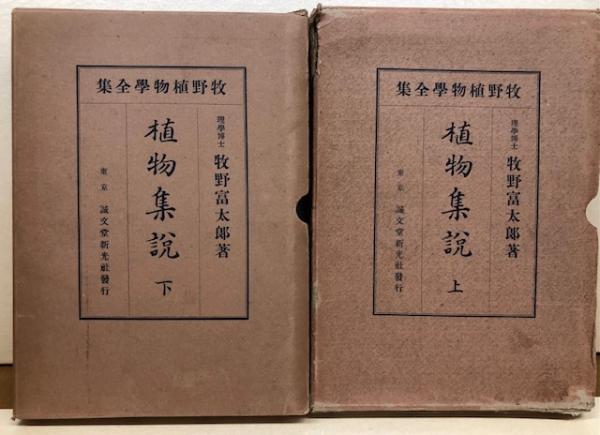 牧野植物學全集
理學博士 牧野富太郎著
植物集說 上
東京 誠文堂新光社發行
牧野植物學全集
理學博士 牧野富太郎著
植物集說 下
東京 誠文堂新光社發行